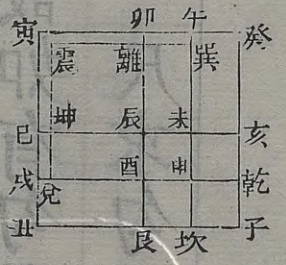 寅 卯 午 癸
震 離 巽
坤 辰 未
巳 亥
酉 申
戌 乾
兌
丑 子
艮 坎